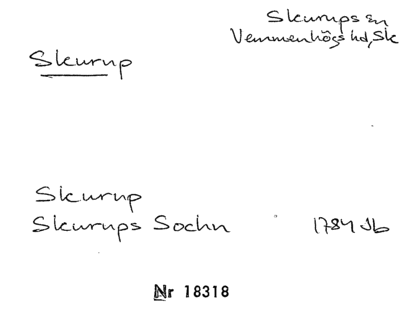 Skurups sn
Vemmenhögs hd, Sk
Skurup
Skurup
Skurups Sochn 1784 Jb
Nr 18318